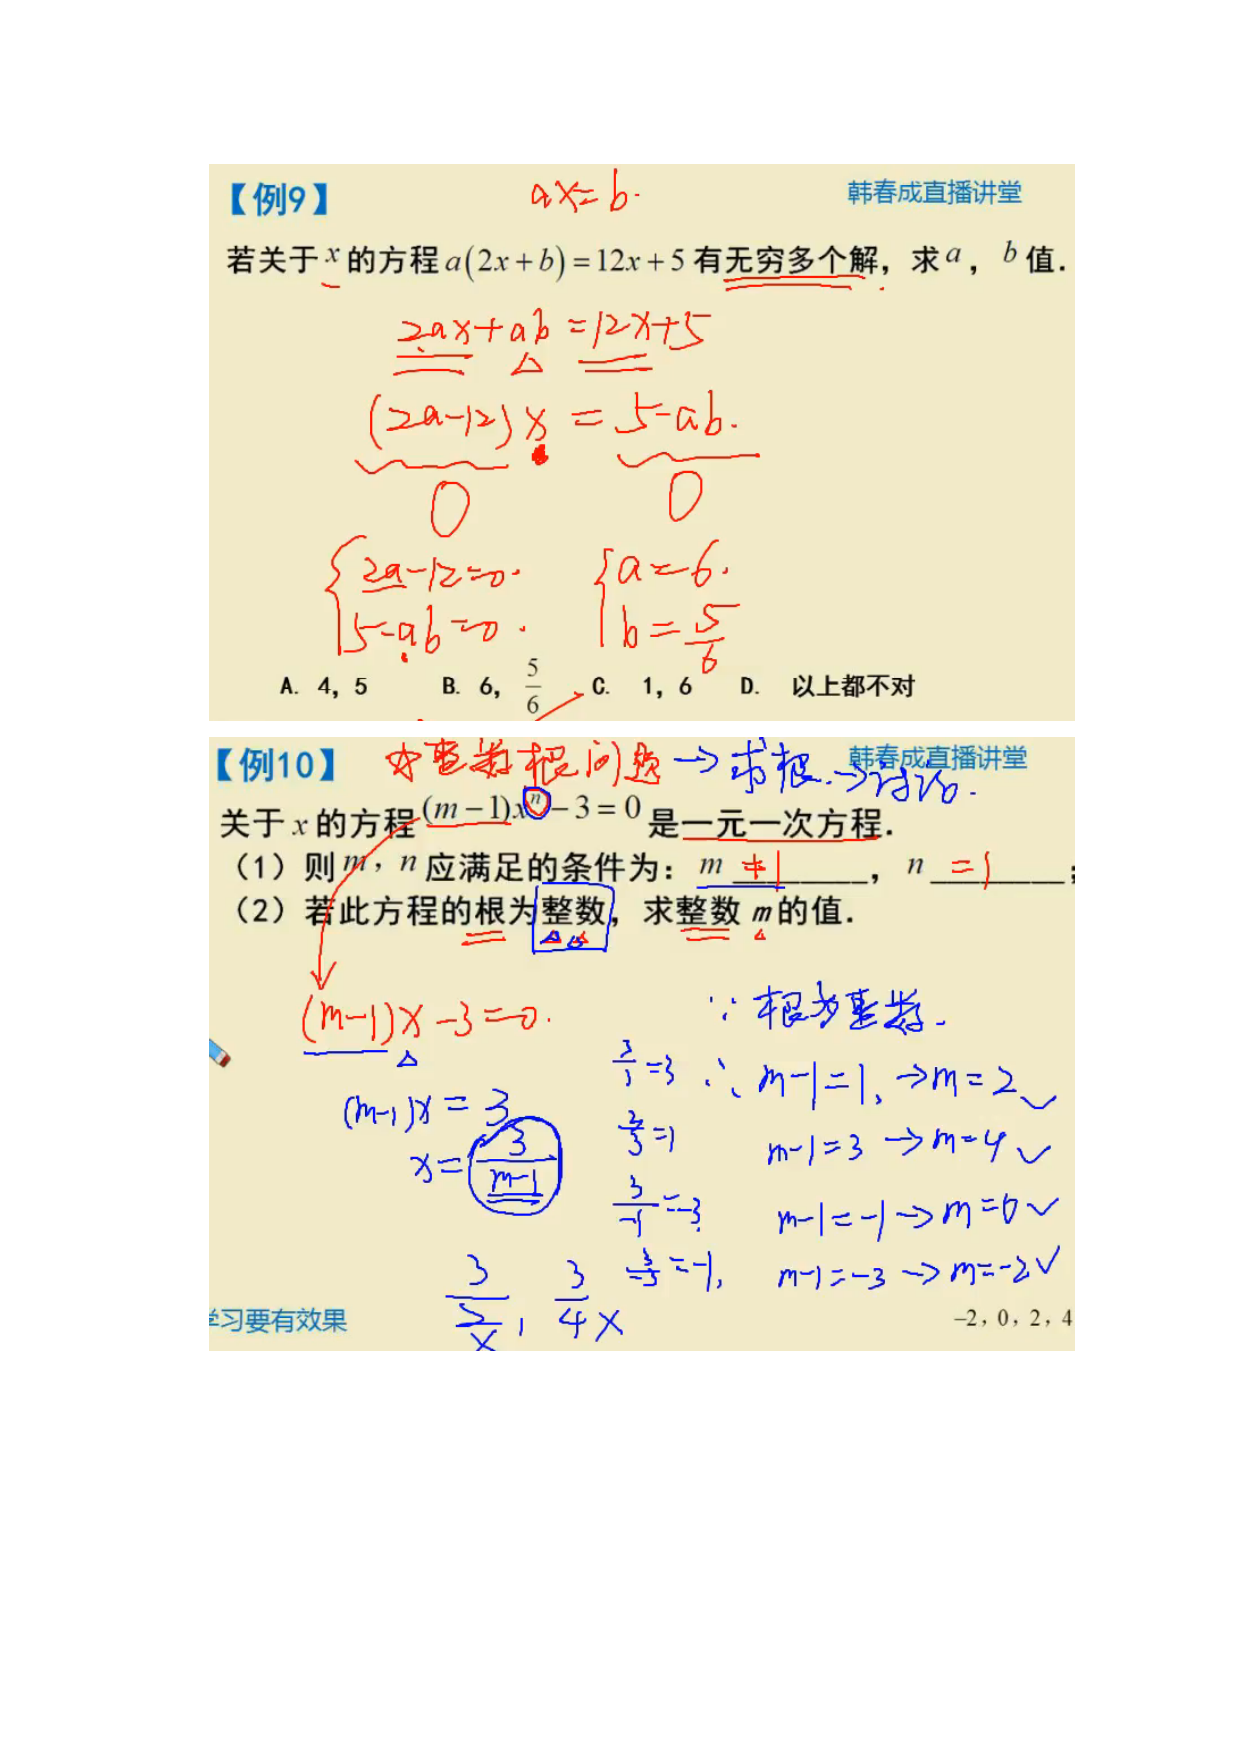 【例9】 ax=b. 韩春成直播讲堂
若关于 x 的方程 a(2x+b)=12x+5 有无穷多个解，求 a，b 值.
2ax+ab=12x+5
(2a-12)x=5-ab.
0 0
2a-12=0. a=6.
5-ab=0. b=5/6
A. 4，5 B. 6，5/6 C. 1，6 D. 以上都不对
【例10】 ☆整数根问题→求根.→讨论. 韩春成直播讲堂
关于 x 的方程 (m-1)xⁿ-3=0 是一元一次方程.
（1）则 m，n 应满足的条件为：m ≠1，n =1；
（2）若此方程的根为整数，求整数 m 的值.
(m-1)x-3=0. ∵根为整数.
3/1=3 ∴m-1=1, →m=2 ✓
(m-1)x=3
3/3=1 m-1=3 →m=4 ✓
x=3/(m-1)
3/-1=-3 m-1=-1→m=0 ✓
3/-3=-1, m-1=-3→m=-2 ✓
3/2 x, 3/4 x
学习要有效果 -2，0，2，4